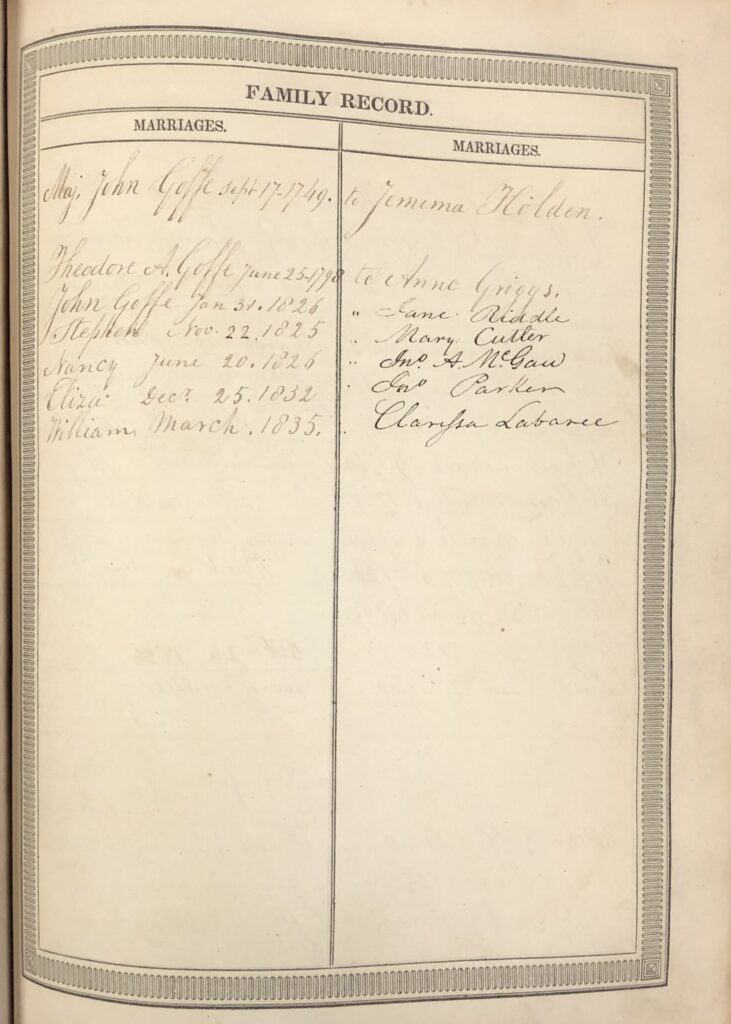 FAMILY RECORD.
MARRIAGES. MARRIAGES.
Maj. John Goffe Sept. 17-1749. to Jemima Holden.
Theodore A. Goffe June 25-1798 to Anne Griggs.
John Goffe Jan 31. 1826 " Jane Riddle
Stephen Nov. 22. 1825 " Mary Cutter
Nancy June 20. 1826 " Jno. A. McGaw
Eliza Decr. 25. 1832 " Jno Parker
William March. 1835. " Clarissa Labaree